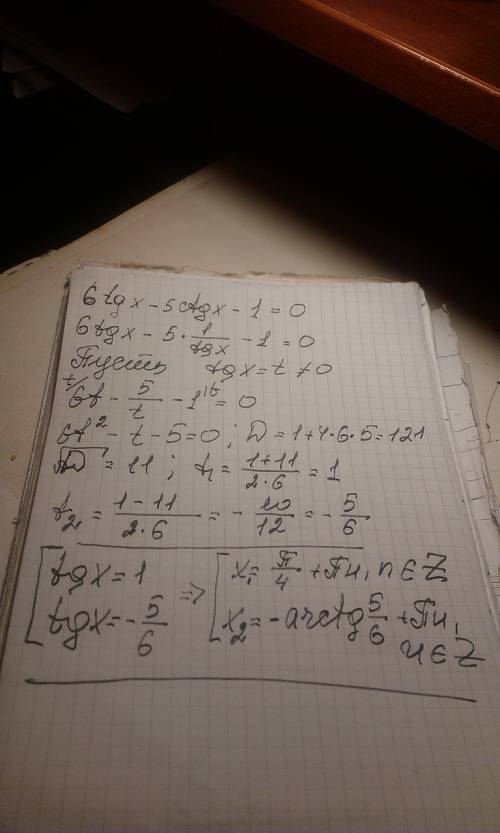 6tgx - 5ctgx - 1 = 0
6tgx - 5 · 1/tgx - 1 = 0
Пусть tgx = t ≠ 0
t/ 6t - 5/t - 1 /t = 0
6t² - t - 5 = 0 ; D = 1+4·6·5 = 121
√D = 11 ; t₁ = (1+11)/(2·6) = 1
t₂ = (1-11)/(2·6) = - 10/12 = - 5/6
[ tgx = 1 => [ x₁ = π/4 + πn, n ∈ Z
tgx = - 5/6 x₂ = - arctg 5/6 + πn,
n ∈ Z